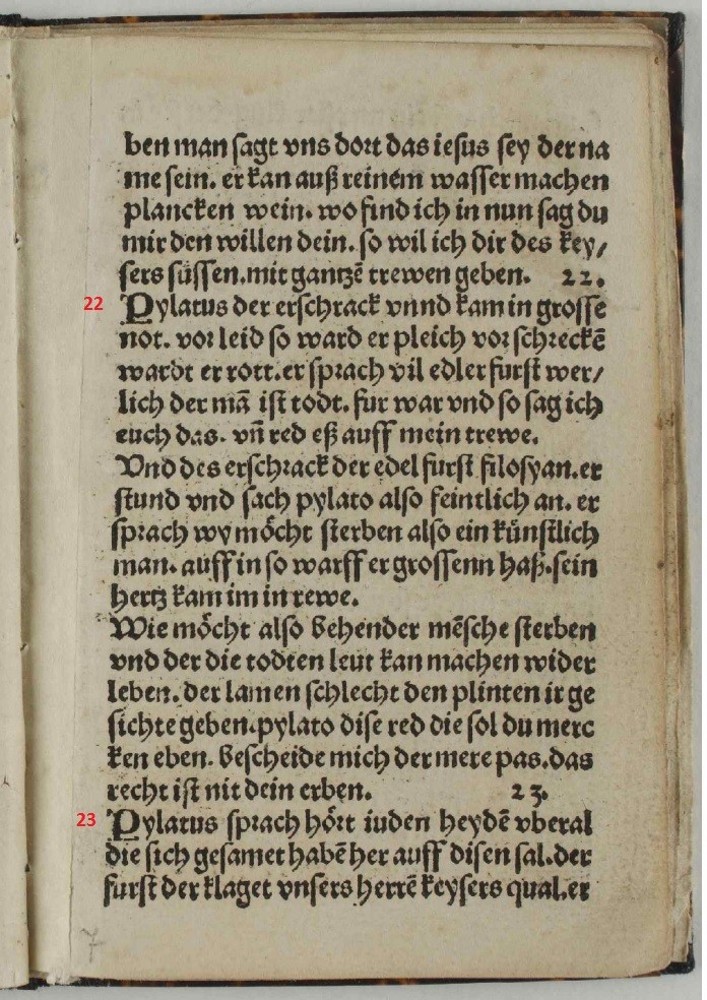 ben man sagt vns dort das iesus sey der na
me sein. er kan auß reinem wasser machen
plancken wein. wo find ich in nun sag du
mir den willen dein. so wil ich dir des key/
sers süssen. mit gantzē trewen geben. 22.
22 Pylatus der erschrack vnnd kam in grosse
not. vor leid so ward er pleich vor schreckē
wardt er rott. er sprach vil edler furst wer/
lich der mā ist todt. fur war vnd so sag ich
euch das. vn̄ red eß auff mein trewe.
Vnd des erschrack der edel furst filosyan. er
stund vnd sach pylato also feintlich an. er
sprach wy möcht sterben also ein künstlich
man. auff in so warff er grossenn haß. sein
hertz kam im in rewe.
Wie möcht also behender mēsche sterben
vnd der die todten leut kan machen wider
leben. der lamen schlecht den plinten ir ge
sichte geben. pylato dise red die sol du merc
ken eben. bescheide mich der mere pas. das
recht ist nit dein erben. 23.
23 Pylatus sprach hört iuden heydē vberal
die sich gesamet habē her auff disen sal. der
furst der klaget vnsers herrē keysers qual. er
7